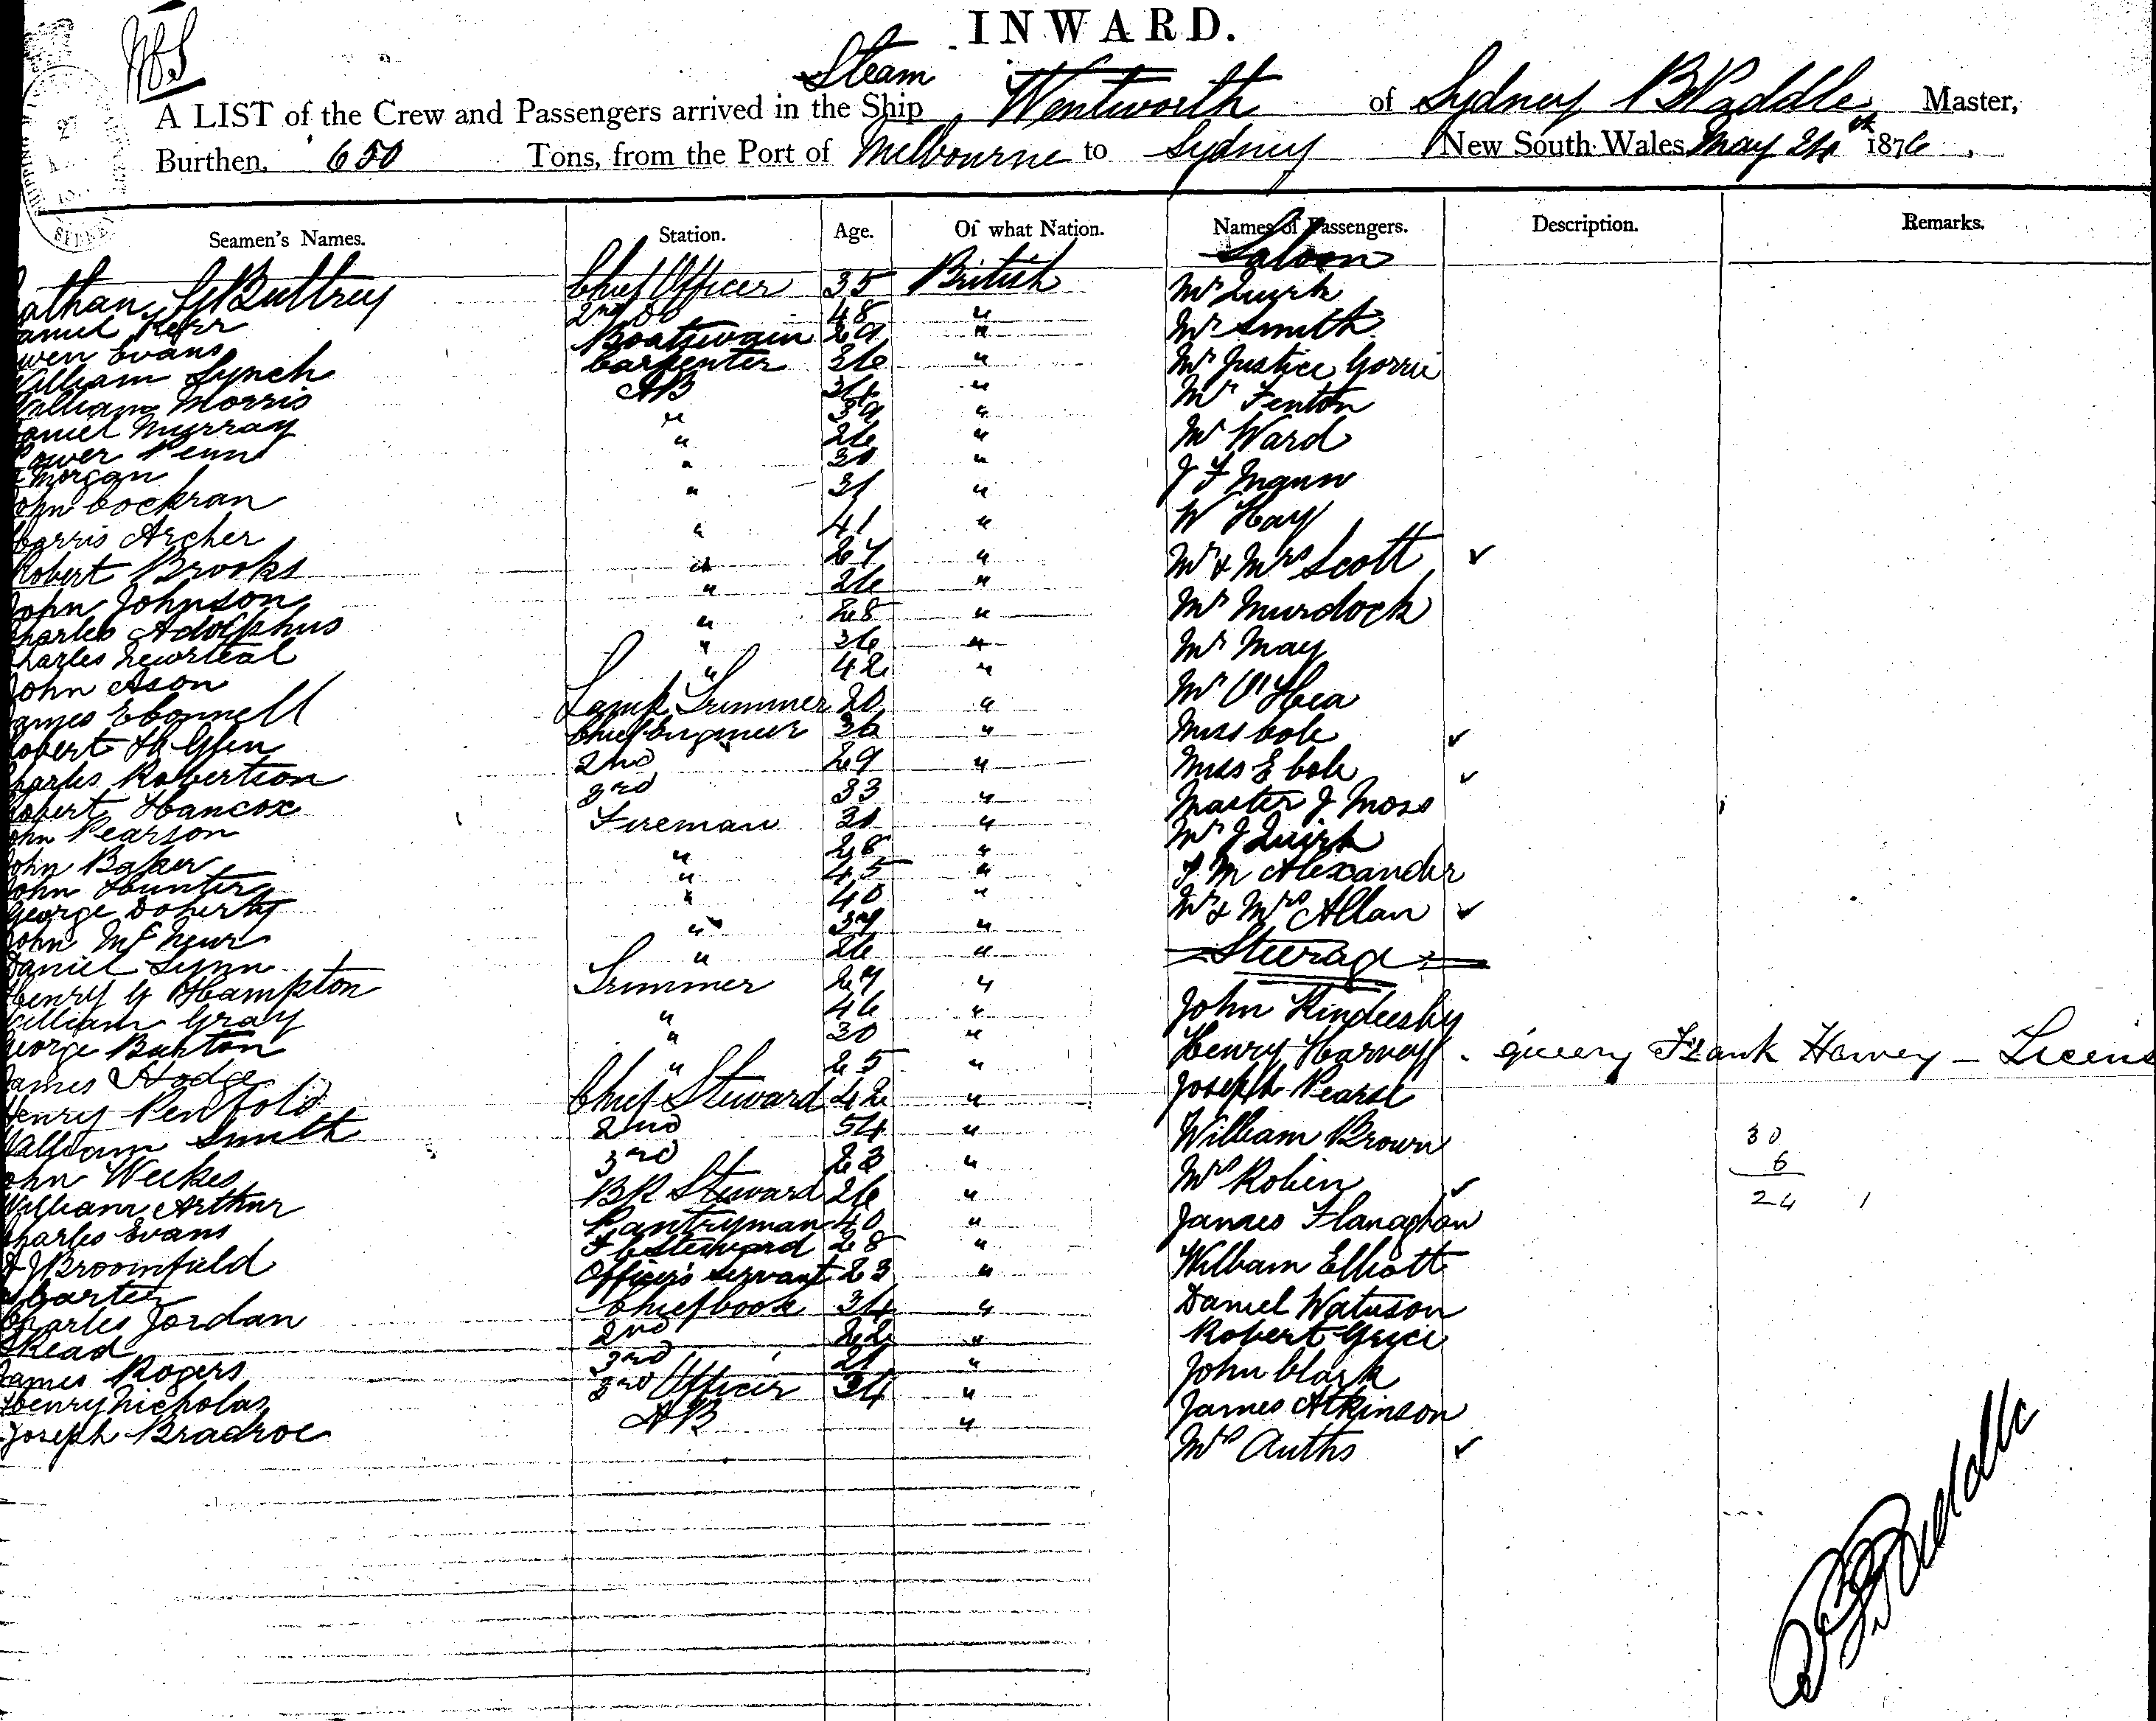 INWARD.
Steam
A LIST of the Crew and Passengers arrived in the Ship Wentworth of Sydney B Paddle Master,
Burthen, 650 Tons, from the Port of Melbourne to Sydney New South Wales May 24th 1876.
Seamen's Names. Station. Age. Of what Nation. Names of Passengers. Description. Remarks.
Saloon
athan G Buttrey Chief Officer 35 British Mr Quirk
amuel Kerr 2nd Do 48 " Mr Smith
wen Evans Boatswain 29 " Mr Justice Gorrie
William Lynch Carpenter 36 " Mr Fenton
William Morris AB 34 " Mr Ward
aniel Murray " 39 " J F Mann
Power Penn " 26 " W Hay
Morgan " 30 " Mr & Mrs Scott ✓
John Cockran " 31 " Mr Murdock
Harris Archer " 41 " Mr May
Robert Brooks " 27 " Mr O'Hea
John Johnson " 26 " Miss Cole ✓
Charles Adolphus " 28 " Miss E Cole ✓
Charles " 36 " Master J Moss
John Ason " 42 " Mr J Quirk
James Lamp Trimmer 20 " M Alexander
Robert H Glen Chief Engineer 36 " Mr & Mrs Allan ✓
Charles Robertson 2nd 29 " Steerage
Robert Hancox 3rd 33 " John
John Pearson Fireman 31 " Henry Harvey . query Frank Harvey — Licens
John Baker " 28 " Joseph Pearse
John Hunter " 45 " William Brown
George Doherty " 40 " Mrs Robin ✓
John Mc " 37 " James Flanaghan
Daniel Lynn " 26 " William Elliott
Henry G Hampton Trimmer 27 " Daniel
William Gray " 46 " Robert Grice
George Burton " 30 " John Clark
James Hodge " 25 " James Atkinson
Henry Penfold Chief Steward 42 " Mrs ✓
William Smith 2nd 54 "
John Weekes 3rd 23 "
William Arthur BR Steward 26 "
Charles Evans Pantryman 40 "
J Broomfield F C Steward 28 "
Carter Officer's Servant 23 "
Charles Jordan Chief Cook 34 "
Read 2nd 22 "
James Rogers 3rd 21 "
Henry Nicholas 3rd Officer 34 "
Joseph Bradroe AB "
30
6
24 1